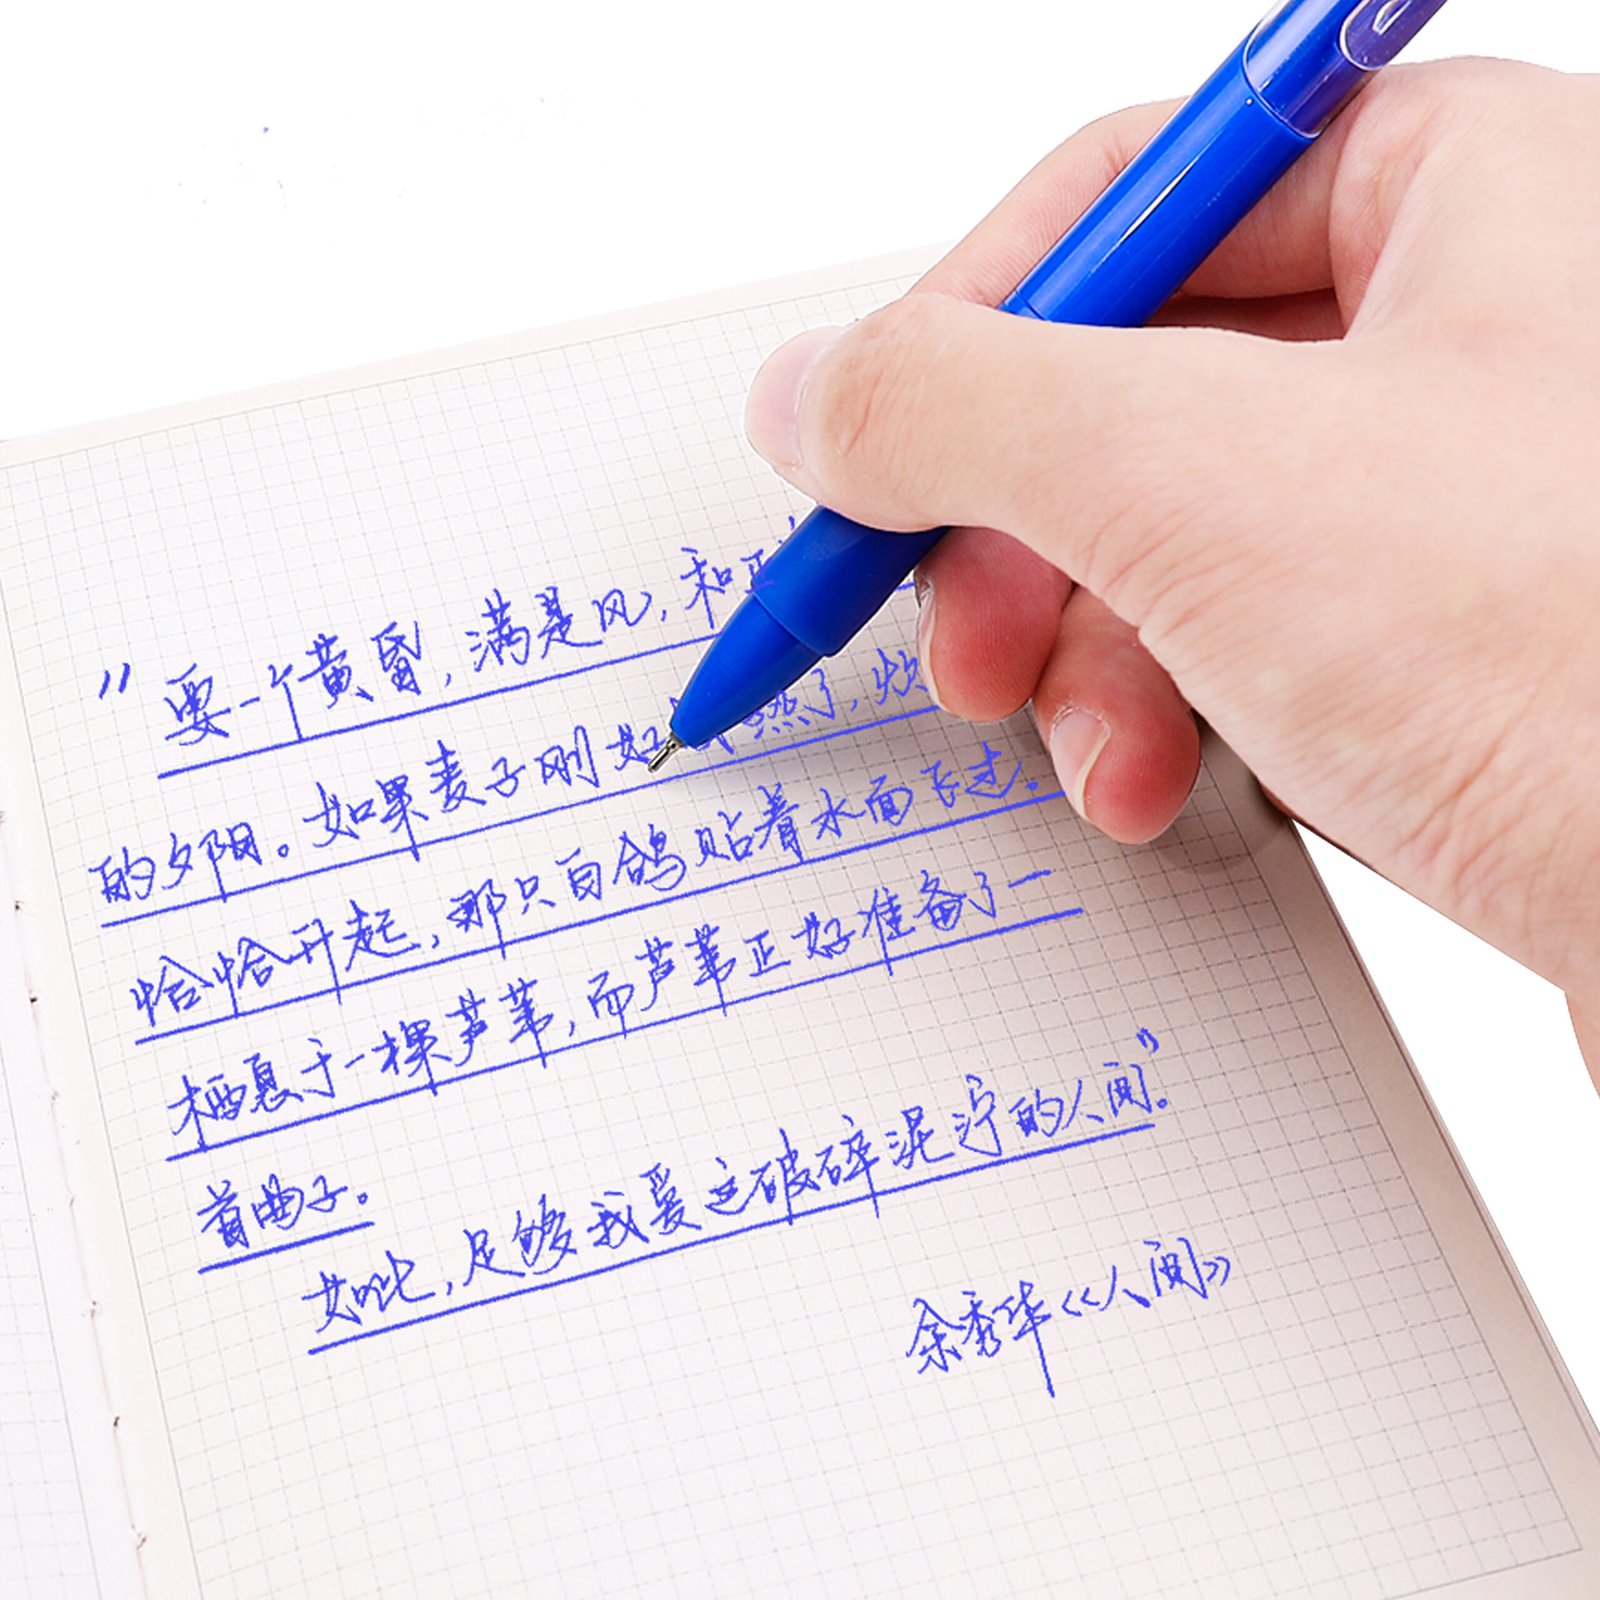 “要一个黄昏,满是风,和正
的夕阳。如果麦子刚好熟了,炊
恰恰升起,那只白鸽贴着水面飞过。
栖息于一棵芦苇,而芦苇正好准备了一
首曲子。
如此,足够我爱这破碎泥泞的人间。”
余秀华《人间》